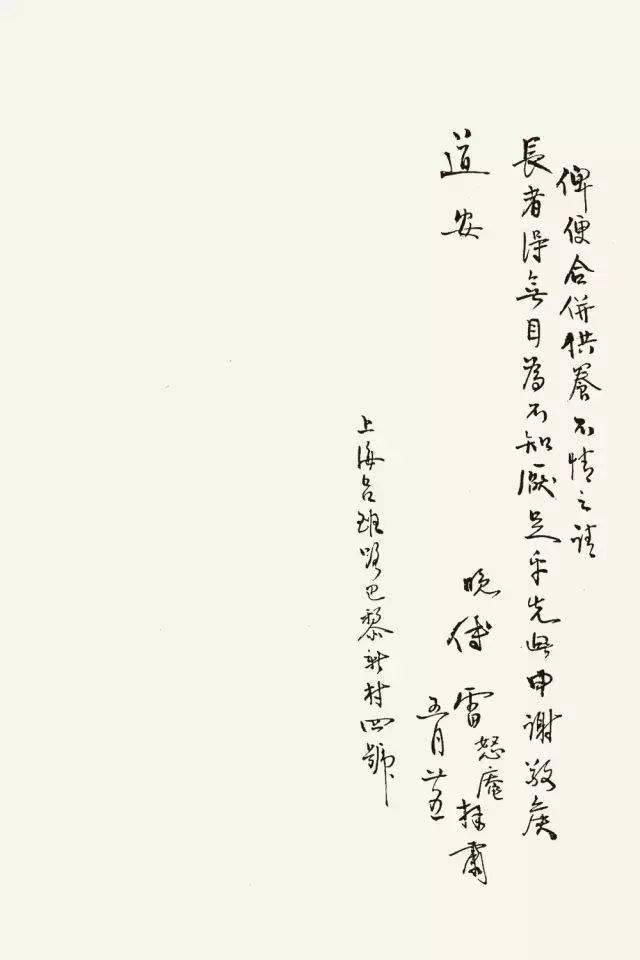 俾便合併供養不情之請
長者得無目為不知厭足乎先此申謝敬候
道安
晚傅雷怒庵拜肅
五月廿五
上海呂班路巴黎新村四號